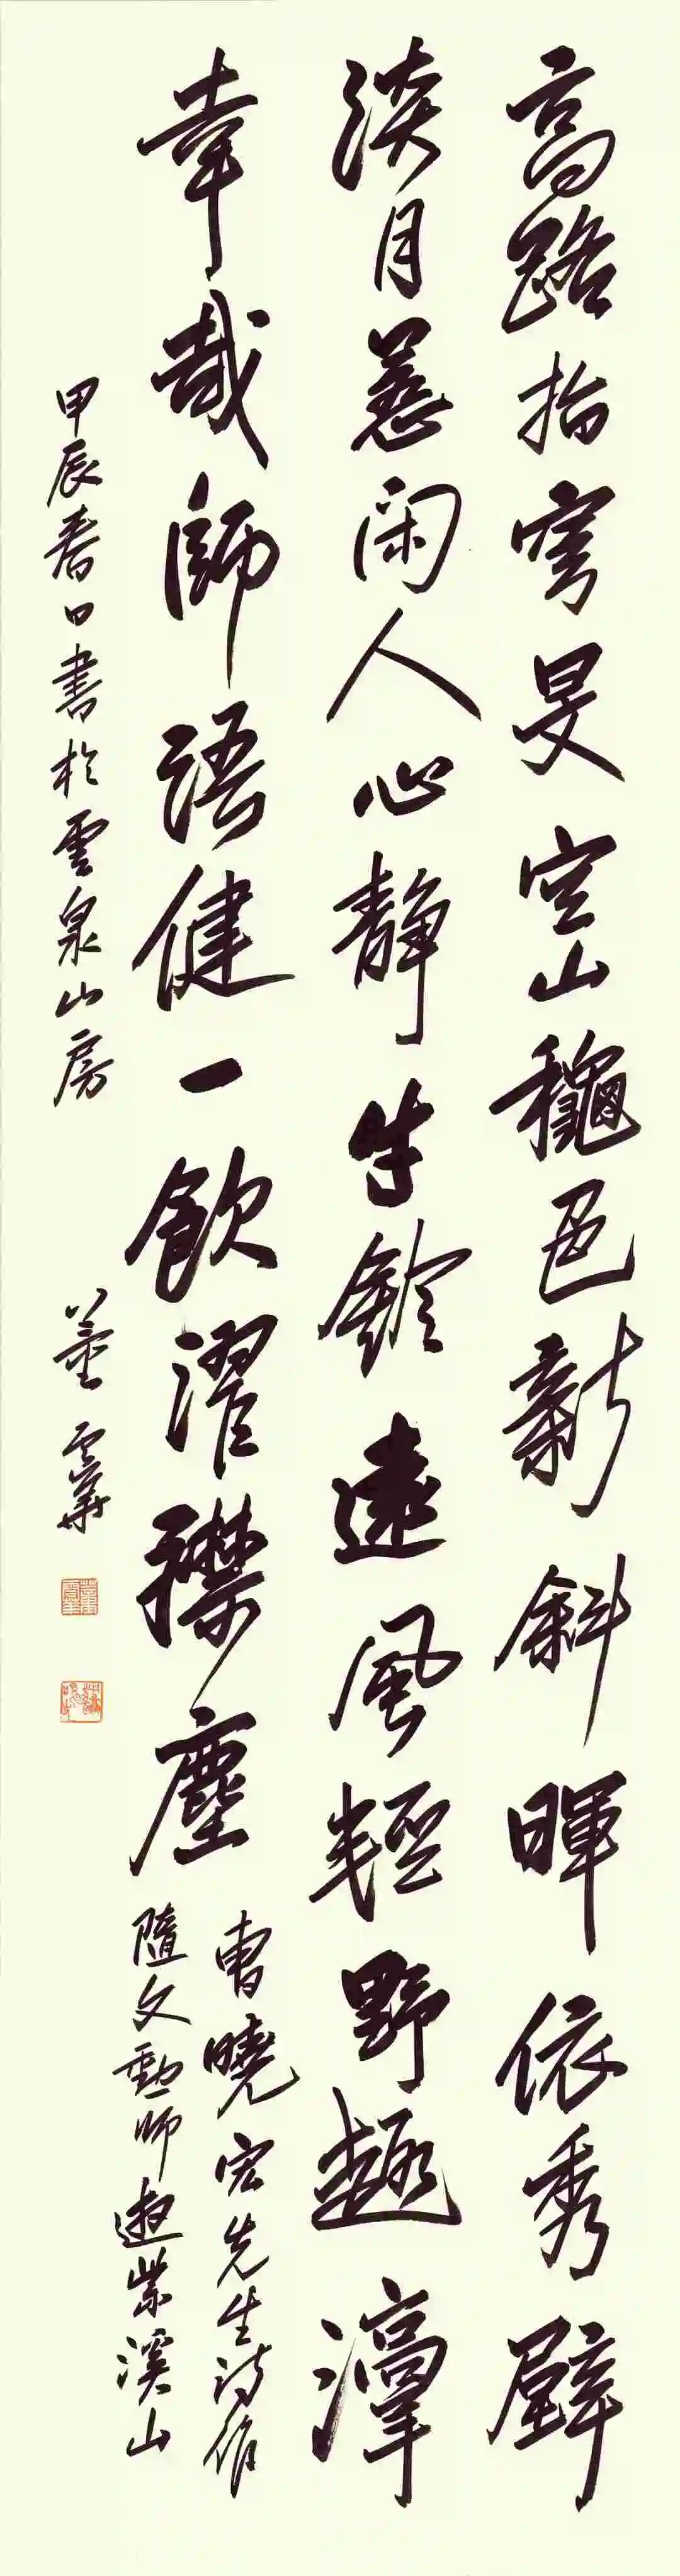 高路抬穹旻空山龝色新斜暉依秀壁
淡月惹闲人心靜牛鈴遠風輕野趣淳
幸哉師語健一飲濯襟塵
曹曉宏先生詩作
隨文勳師遊紫溪山
甲辰春日書於雲泉山房 董雲華